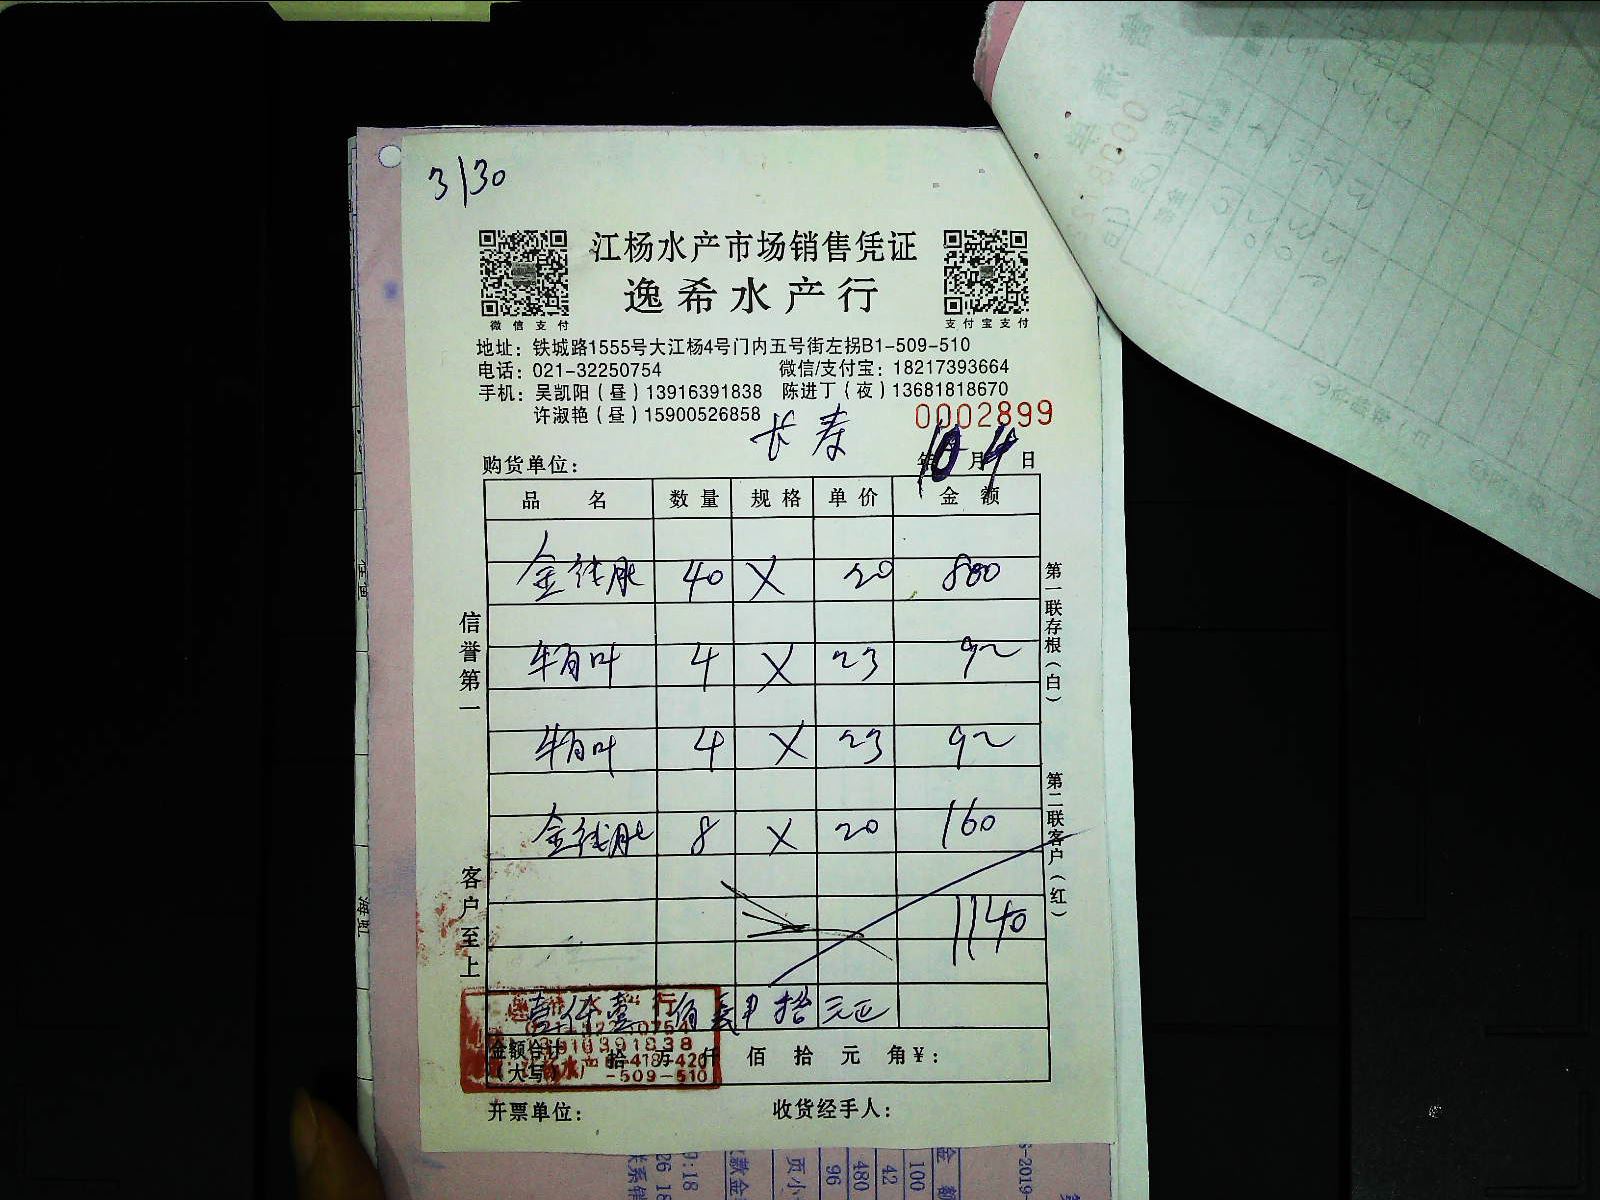 3/30
江杨水产市场销售凭证
逸希水产行
微信支付
支付宝支付
地址：铁城路1555号大江杨4号门内五号街左拐B1-509-510
电话：021-32250754 微信/支付宝：18217393664
手机：吴凯阳（昼）13916391838 陈进丁（夜）13681818670
许淑艳（昼）15900526858
0002899
长寿
购货单位： 年 10 月 4 日
品名 数量 规格 单价 金额
金钱肚 40 X 20 800
牛百叶 4 X 23 92
牛百叶 4 X 23 92
金钱肚 8 X 20 160
1140
壹仟壹佰 拾元正
金额合计（大写） 拾 万 仟 佰 拾 元 角 ¥：
开票单位： 收货经手人：
信誉第一
客户至上
第一联存根（白）
第二联客户（红）
-509-510
100
42
480
96